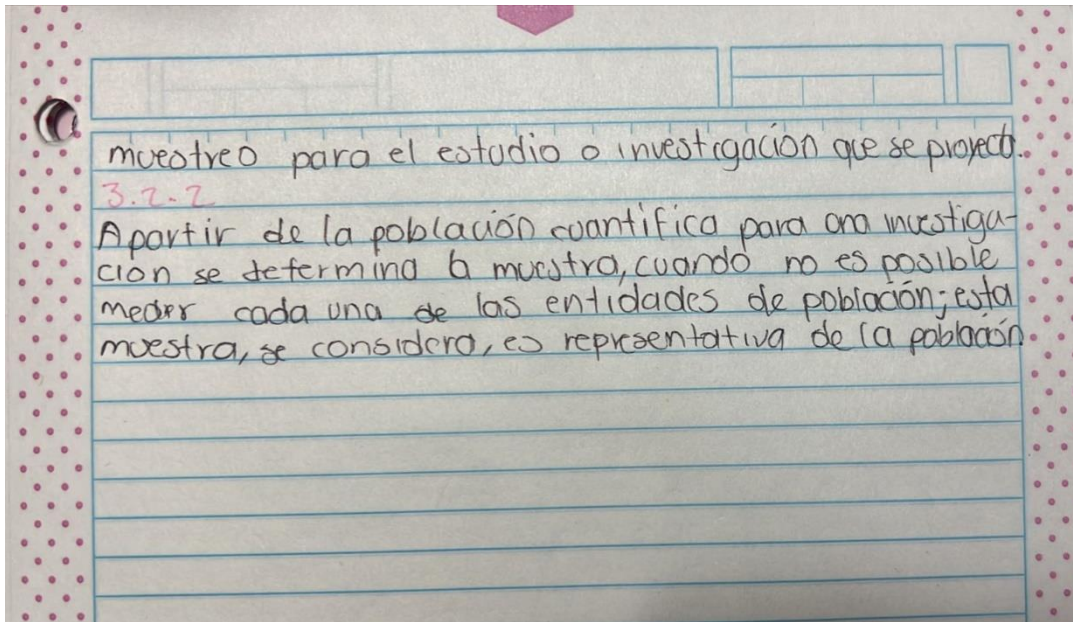 muestreo para el estudio o investigación que se proyecta.
3.2.2
A partir de la población cuantifica para una investiga-
ción se determina la muestra, cuando no es posible
medir cada una de las entidades de población; esta
muestra, se considera, es representativa de la población.